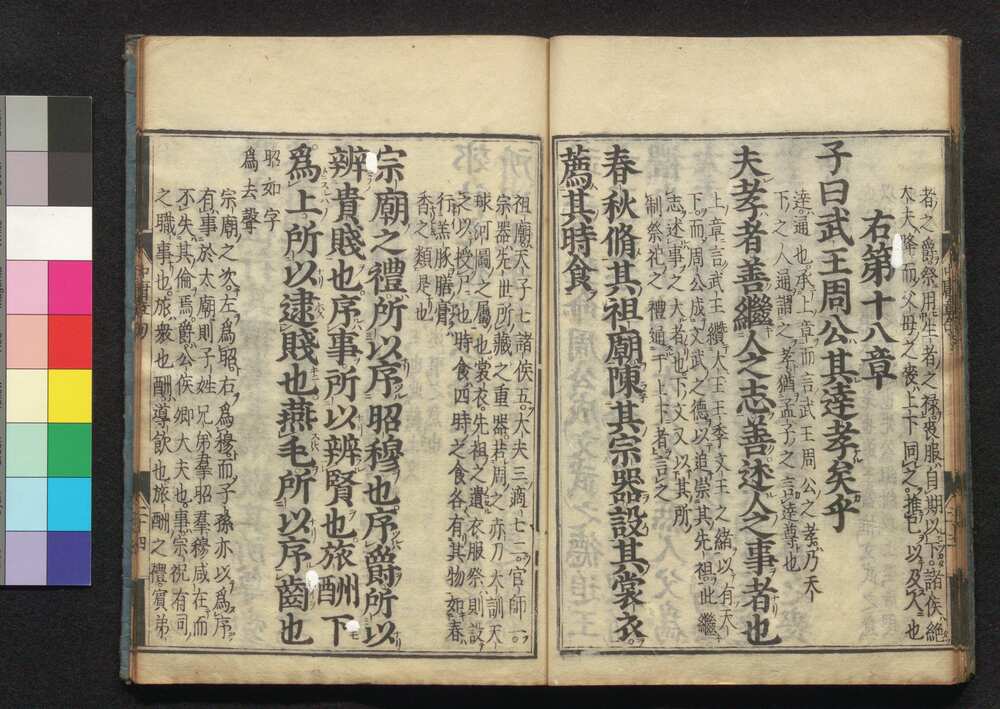 者之爵祭用生者之祿喪服自期以下諸侯絶
大夫降而父母之喪上下同之推己以及人也
右第十八章
子曰武王周公其達孝矣乎
達通也承上章而言武王周公之孝乃天
下之人通謂之孝猶孟子之言達尊也
夫孝者善繼人之志善述人之事者也
上章言武王纘大王王季文王之緒以有天
下而周公成文武之德以追崇其先祖此繼
志述事之大者也下文又以其所
制祭祀之禮通于上下者言之
春秋脩其祖廟陳其宗器設其裳衣
薦其時食
祖廟天子七諸侯五大夫三適士二官師一
宗器先世所藏之重器若周之赤刀大訓天
球河圖之屬也裳衣先祖之遺衣服祭則設
之以授尸也時食四時之食各有其物如春
行羔豚膳膏
香之類是也
宗廟之禮所以序昭穆也序爵所以
辨貴賤也序事所以辨賢也旅酬下
爲上所以逮賤也燕毛所以序齒也
昭如字
爲去聲
宗廟之次左爲昭右爲穆而子孫亦以爲序
有事於太廟則子姓兄弟羣昭羣穆咸在而
不失其倫焉爵公侯卿大夫也事宗祝有司
之職事也旅衆也酬導飮也旅酬之禮賓弟